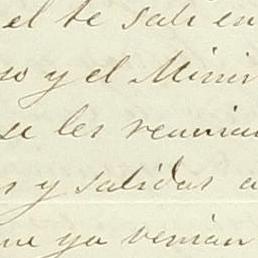 el te sali en
so y el Minis
se les reunian
s y salidas a
me ya venian